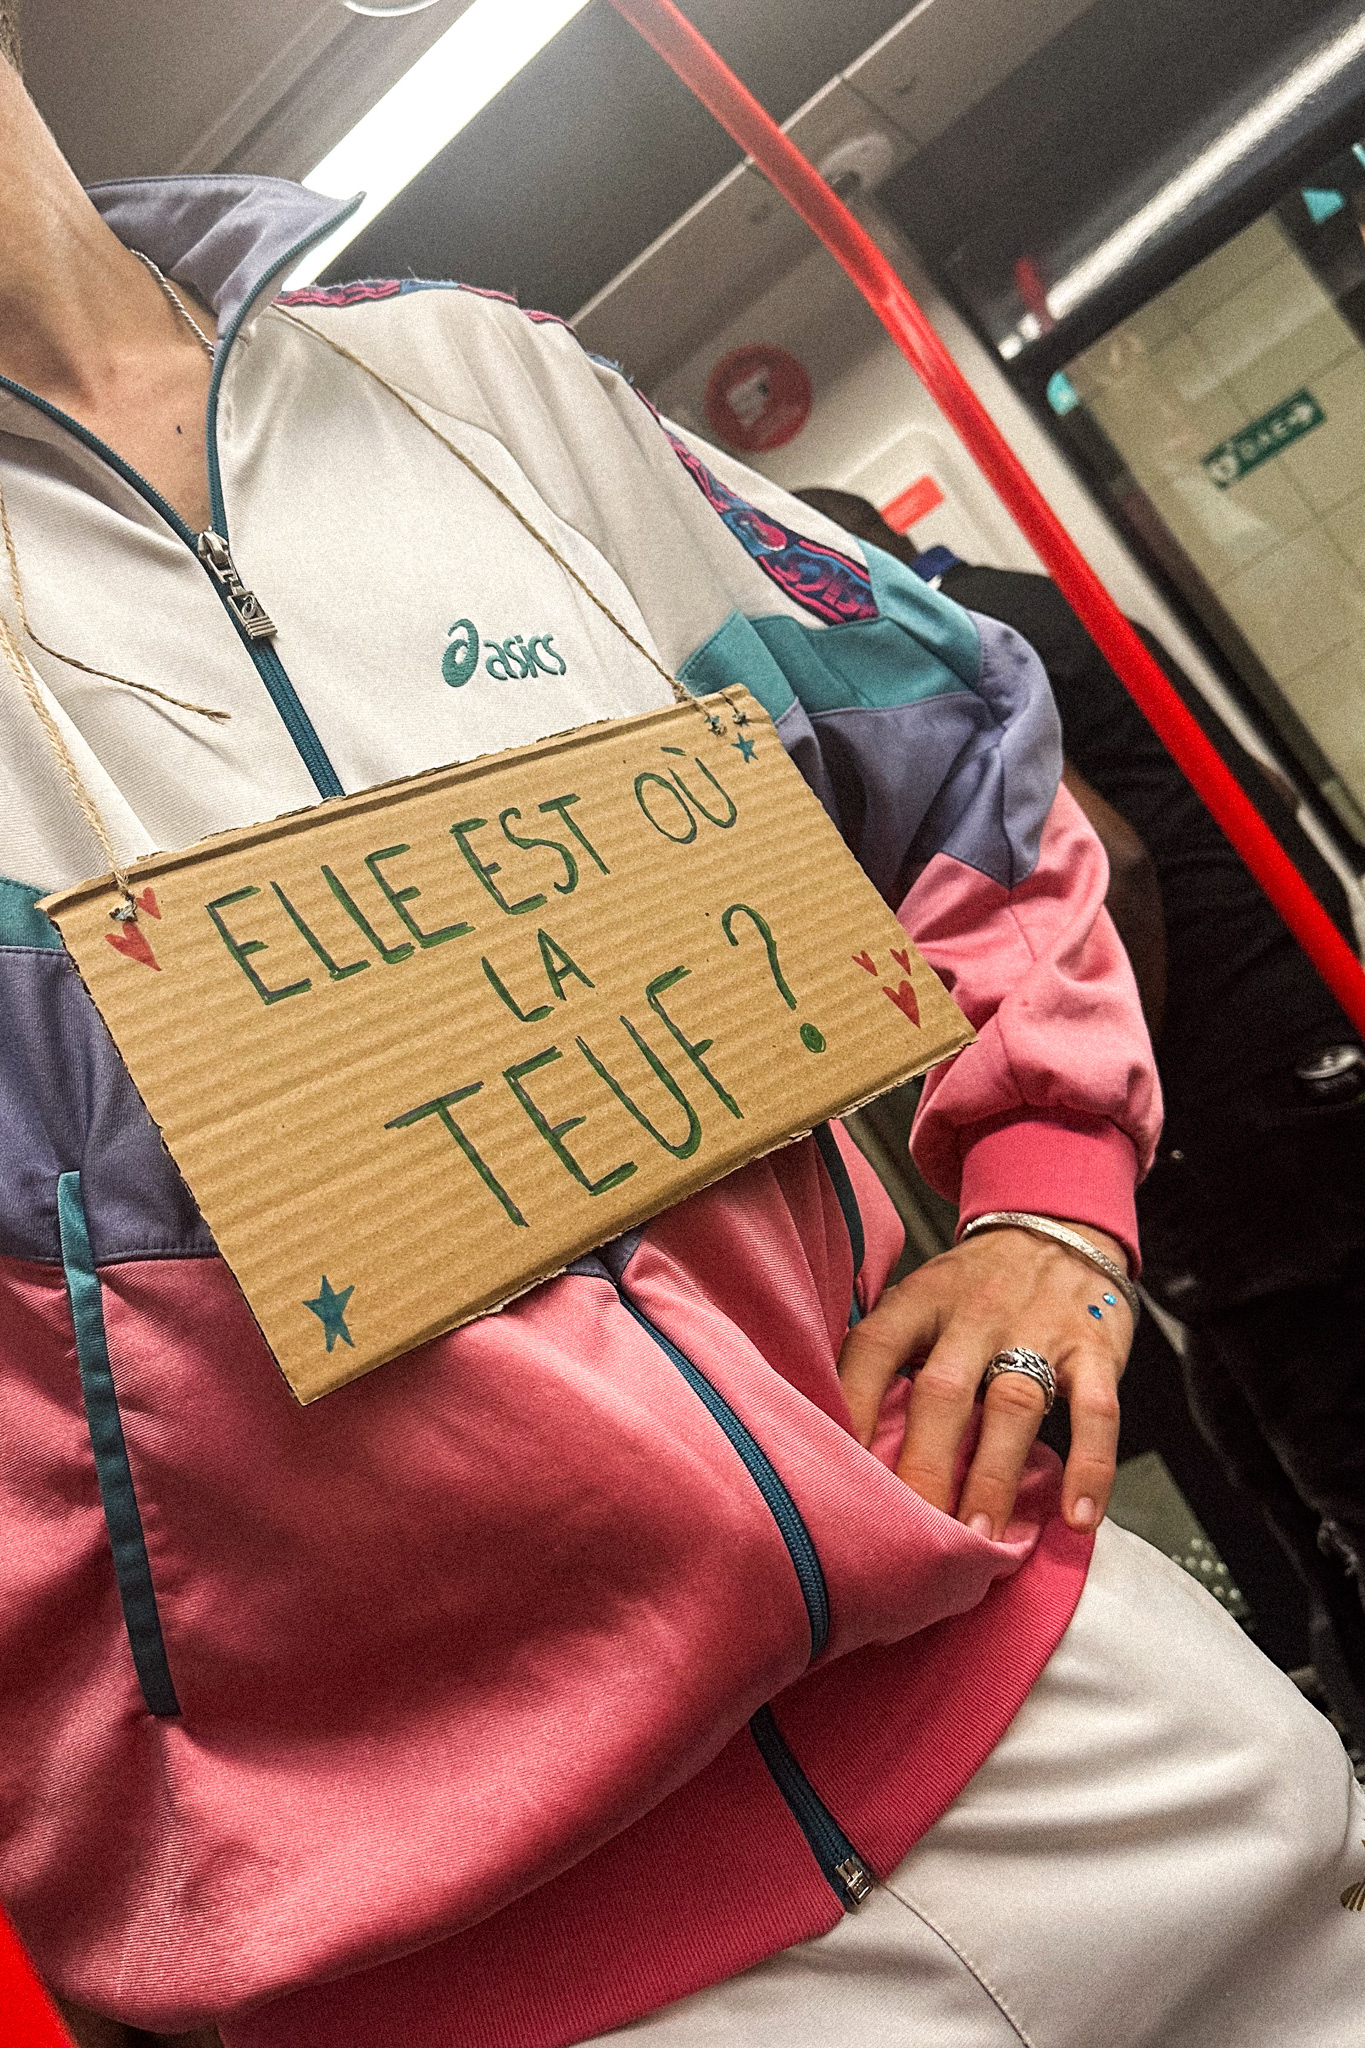 asics
ELLE EST OÙ
LA
TEUF ?